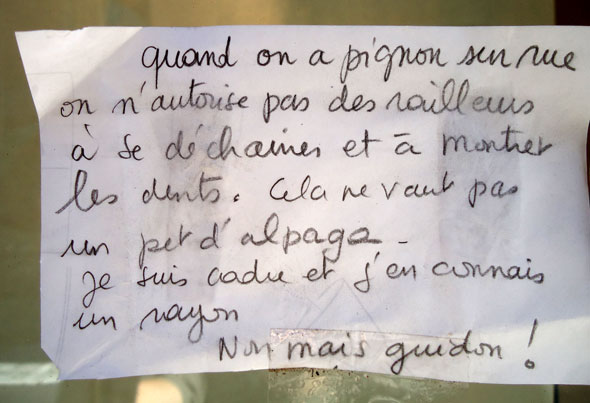 quand on a pignon sur rue
on n'autorise pas des railleurs
à se déchainer et à montrer
les dents. Cela ne vaut pas
un pet d'alpaga -
je suis cadre et j'en connais
un rayon
Non mais guidon !